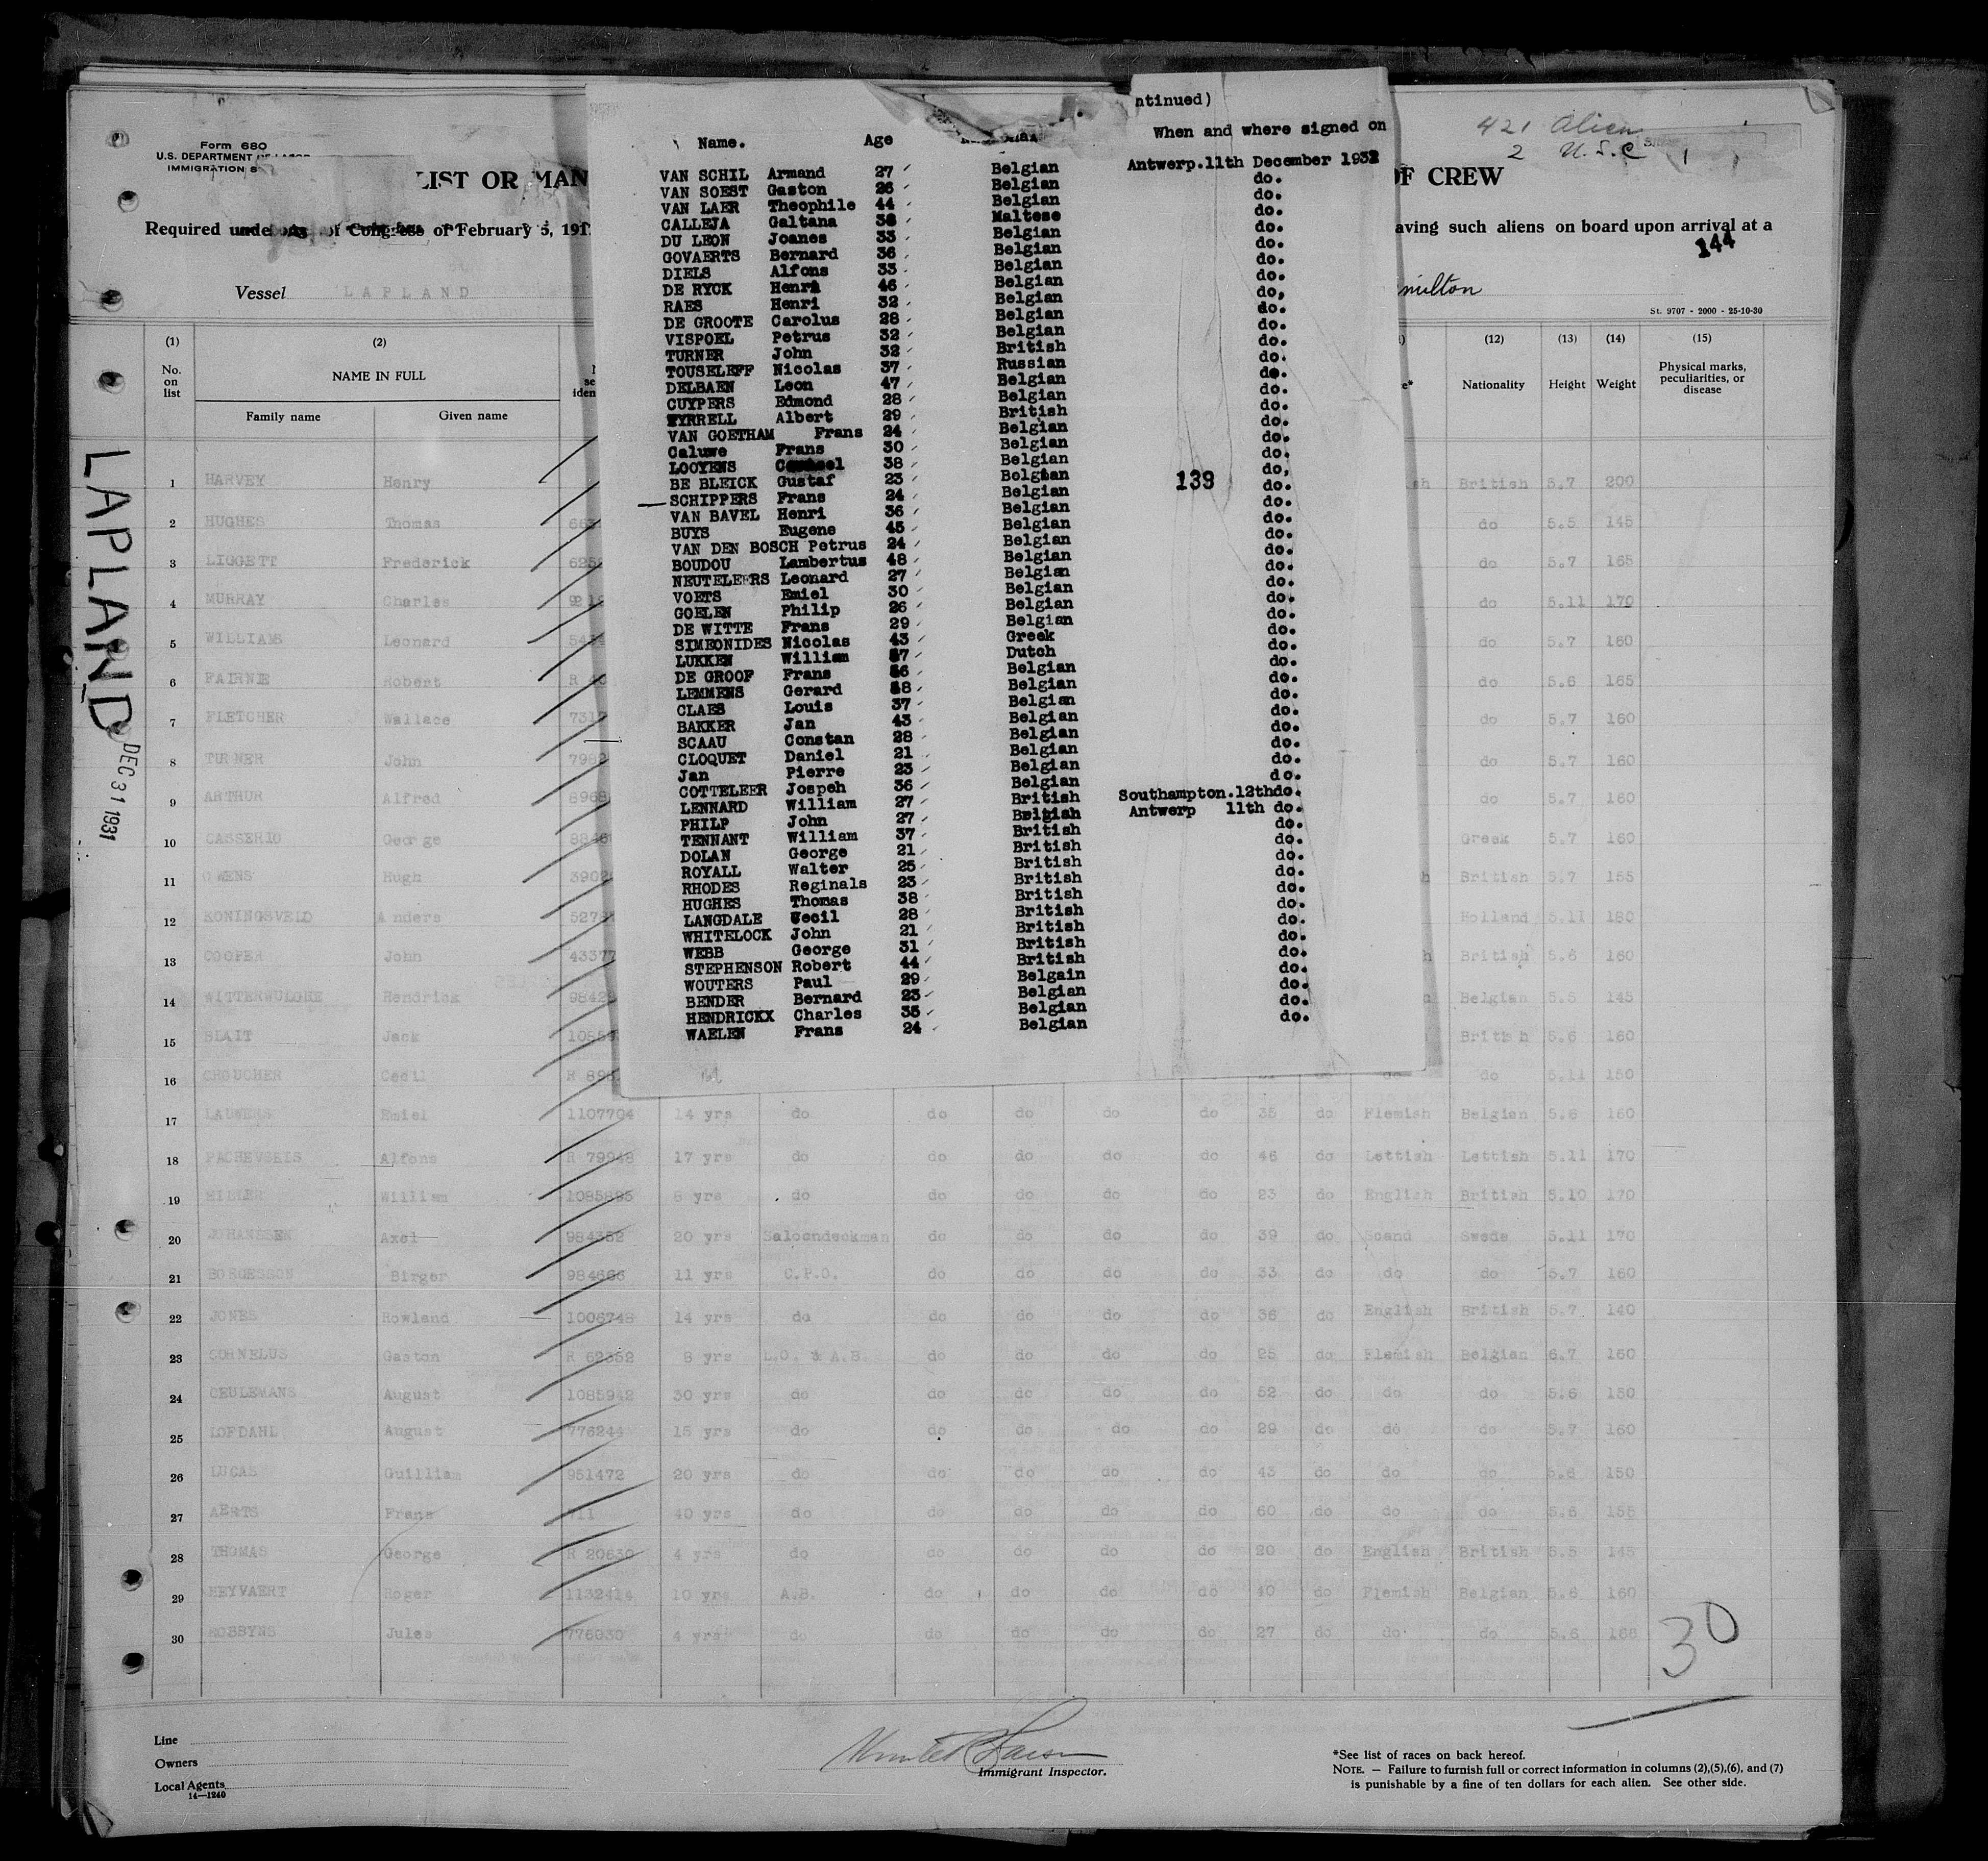 Form 680
U.S. DEPARTMENT OF LABOR
IMMIGRATION S
LIST OR MAN
OF CREW
421 Alien
2 U.S.C
1
Required under of Congress of February 5, 191
aving such aliens on board upon arrival at a
144
Vessel LAPLAND
milton
St. 9707 - 2000 - 25-10-30
ntinued)
Name. Age When and where signed on
VAN SCHIL Armand 27 Belgian Antwerp.11th December 1932
VAN SOEST Gaston 26 Belgian do.
VAN LAER Theophile 44 Belgian do.
CALLEJA Galtana 38 Maltese do.
DU LEON Joanes 33 Belgian do.
GOVAERTS Bernard 36 Belgian do.
DIELS Alfons 33 Belgian do.
DE RYCK Henri 46 Belgian do.
RAES Henri 32 Belgian do,
DE GROOTE Carolus 28 Belgian do.
VISPOEL Petrus 32 Belgian do.
TURNER John 32 British do.
TOUSELEFF Nicolas 37 Russian do.
DELBAEN Leon 47 Belgian do.
CUYPERS Edmond 28 Belgian do.
TYRRELL Albert 29 British do.
VAN GOETHAM Frans 24 Belgian do.
Caluwe Frans 30 Belgian do.
LOOYENS 38 Belgian do.
BE BLEICK Gustaf 23 Belgian 139 do,
SCHIPPERS Frans 24 Belgian do.
VAN BAVEL Henri 36 Belgian do.
BUYS Eugene 45 Belgian do.
VAN DEN BOSCH Petrus 24 Belgian do.
BOUDOU Lambertus 48 Belgian do.
NEUTELEERS Leonard 27 Belgian do.
VOETS Emiel 30 Belgian do.
GOELEN Philip 26 Belgian do.
DE WITTE Frans 29 Belgian do.
SIMEONIDES Nicolas 43 Greek do.
LUKKEN William 37 Dutch do.
DE GROOF Frans 36 Belgian do.
LEMMENS Gerard 38 Belgian do.
CLAES Louis 37 Belgian do.
BAKKER Jan 43 Belgian do.
SCAAU Constan 28 Belgian do.
CLOQUET Daniel 21 Belgian do.
Jan Pierre 23 Belgian do.
COTTELEER Jospeh 36 Belgian do.
LENNARD William 27 British Southampton.12thdo.
PHILP John 27 British Antwerp 11th do.
TENNANT William 37 British do.
DOLAN George 21 British do.
ROYALL Walter 25 British do.
RHODES Reginals 23 British do.
HUGHES Thomas 38 British do.
LANGDALE Cecil 28 British do.
WHITELOCK John 21 British do.
WEBB George 31 British do.
STEPHENSON Robert 44 British do.
WOUTERS Paul 29 Belgain do.
BENDER Bernard 23 Belgian do.
HENDRICKX Charles 35 Belgian do.
WAELEN Frans 24 Belgian do.
LAPLAND
DEC 31 1931
(1) (2) (12) (13) (14) (15)
No. on list NAME IN FULL Nationality Height Weight Physical marks, peculiarities, or disease
Family name Given name
1 HARVEY Henry British 5.7 200
2 HUGHES Thomas do 5.5 145
3 LIGGETT Frederick do 5.7 165
4 MURRAY Charles do 5.11 170
5 WILLIAMS Leonard do 5.7 160
6 FAIRNIE Robert do 5.6 165
7 FLETCHER Wallace do 5.7 160
8 TURNER John do 5.7 160
9 ARTHUR Alfred do 5.7 160
10 CASSERIO George Greek 5.7 160
11 OWENS Hugh British 5.7 155
12 KONINGSVELD Anders Holland 5.11 180
13 COOPER John 43377 British 5.6 160
14 WITTERWULGHE Hendrick Belgian 5.5 145
15 SLAIT Jack British 5.6 160
16 CROUCHER Cecil do 5.11 150
17 LAUWERS Emiel 1107704 14 yrs do do do do do 35 do Flemish Belgian 5.6 160
18 PACHEVSKIS Alfons R 79948 17 yrs do do do do do 46 do Lettish Lettish 5.11 170
19 HILLER William 1085895 6 yrs do do do do do 23 do English British 5.10 170
20 JOHANSSEN Axel 984352 20 yrs Saloondeckman do do do do 39 do Scand Swede 5.11 170
21 BORGESSON Birger 984666 11 yrs C.P.O. do do do do 33 do do do 5.7 160
22 JONES Rowland 1006748 14 yrs do do do do do 36 do English British 5.7 140
23 CORNELUS Gaston R 62352 8 yrs L.O. & A.B. do do do do 25 do Flemish Belgian 6.7 160
24 CEULEMANS August 1085942 30 yrs do do do do do 52 do do do 5.6 150
25 LOFDAHL August 776244 15 yrs do do do do do 29 do do do 5.7 160
26 LUCAS Guilliam 951472 20 yrs do do do do do 43 do do do 5.6 150
27 AERTS Frans 40 yrs do do do do do 60 do do do 5.6 155
28 THOMAS George R 20630 4 yrs do do do do do 20 do English British 5.5 145
29 HEYVAERT Roger 1132414 10 yrs A.B. do do do do 40 do Flemish Belgian 5.6 160
30 ROBBYNS Jules 776030 4 yrs do do do do do 27 do do do 5.6 168
30
Line
Owners
Local Agents
14—1240
Immigrant Inspector.
*See list of races on back hereof.
NOTE. — Failure to furnish full or correct information in columns (2),(5),(6), and (7)
is punishable by a fine of ten dollars for each alien. See other side.